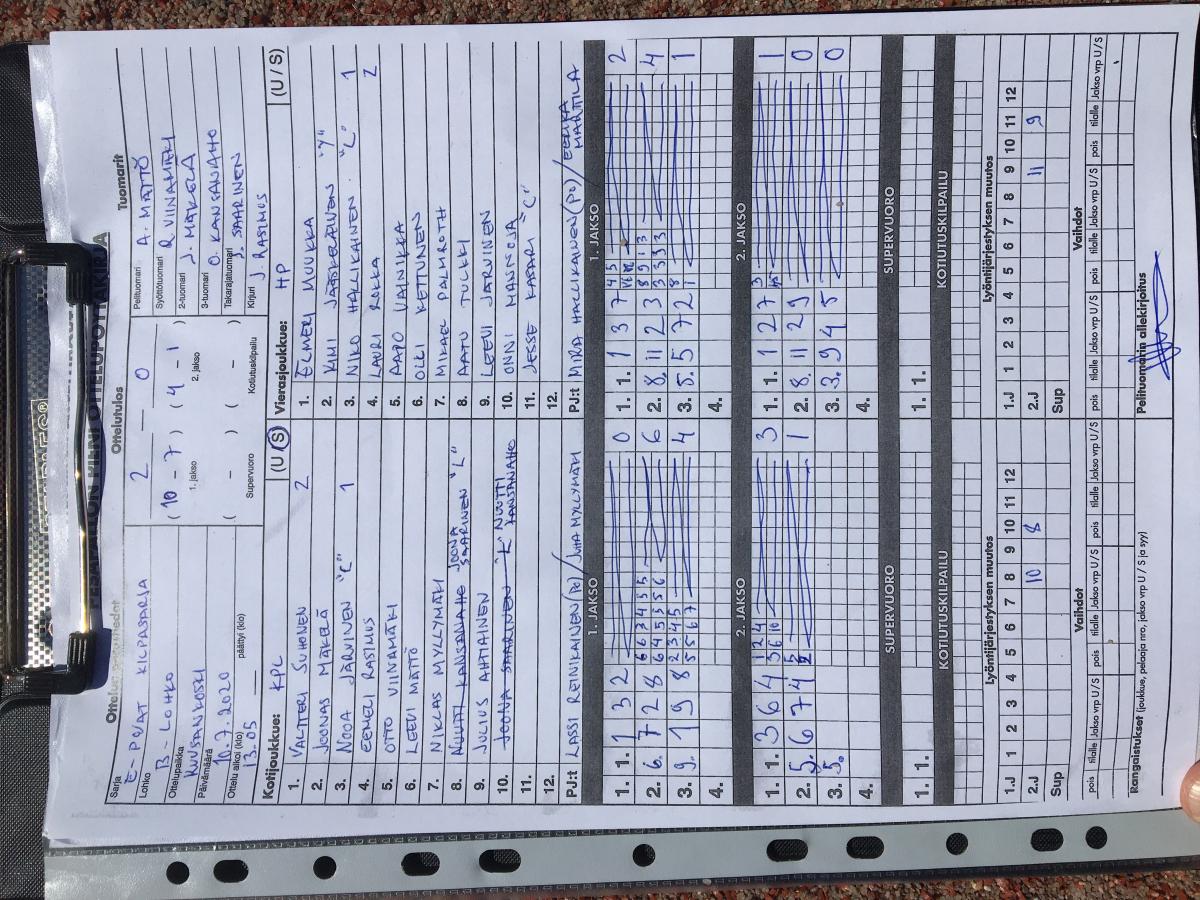 PESÄPALLON MINI OTTELUPÖYTÄKIRJA
Ottelutulos
Tuomarit
Sarja
E-POJAT KILPASARJA
Lohko
B-LOHKO
Ottelupaikka
KUUSANKOSKI
Päivämäärä
10.7.2020
Ottelu alkoi (klo)
13.05
päättyi (klo)
2 — 0
(10 - 7) (4 - 1)
1. jakso
2. jakso
( - ) ( - )
Supervuoro
Kotiutuskilpailu
Pelituomari A. MÄTTÖ
Syöttötuomari R. VIINAMÄKI
2-tuomari J. MÄKELÄ
3-tuomari O. KANSANAHO
Takarajatuomari J. SAARINEN
Kirjuri J. RASIMUS
Kotijoukkue: KPL (U / S)
1. VALTTERI SUHONEN 2
2. JOONAS MÄKELÄ
3. NOOA JÄRVINEN "C" 1
4. EEMELI RASIMUS
5. OTTO VIINAMÄKI
6. LEEVI MÄTTÖ
7. NIKLAS MYLLYMÄKI
8. NUUTTI KANSANAHO JOONA SAARINEN "L"
9. JULIUS AHTIAINEN
10. JOONA SAARINEN "L" NUUTTI KANSANAHO
11.
12.
PJ:t LASSI REINIKAINEN (PO) / JUHA MYLLYMÄKI
Vierasjoukkue: HP (U / S)
1. ELMERI MUUKKA
2. KIMI JÄÄSKELÄINEN "Y"
3. NIKO HALLIKAINEN "L" 1
4. LAURI ROKKA 2
5. AAPO VAINIKKA
6. OLLI KETTUNEN
7. MIKAEL PALMROTH
8. AATU TULKKI
9. LEEVI JÄRVINEN
10. ONNI MANNOJA
11. JESSE KAPARI "C"
12.
PJ:t MIRA HALLIKAINEN (PO) / EERIKA MARTTILA
1. JAKSO
1. 1. 1 3 2 0
2. 6. 7 2 8 6 6 3 4 5 5 6
6 4 5 5 5 6
3. 9. 1 9 8 2 3 4 5 4
5 5 6 7
4.
1. JAKSO
1. 1. 1 3 7 4 5 2
2. 8. 11 2 3 8 9 1 3 4
3 3 3 3
3. 5. 5 7 2 8 1
1
4.
2. JAKSO
1. 1. 3 6 4 1 2 4 3
5 6 10
2. 5. 6 7 4 5 1
3. 5.
4.
2. JAKSO
1. 1. 1 2 7 3 1
2. 8. 11 2 9 0
3. 3. 9 4 5 0
4.
SUPERVUORO
1. 1.
SUPERVUORO
1. 1.
KOTIUTUSKILPAILU
KOTIUTUSKILPAILU
Lyöntijärjestyksen muutos
1 2 3 4 5 6 7 8 9 10 11 12
1.J
2.J 10 8
Sup
Lyöntijärjestyksen muutos
1 2 3 4 5 6 7 8 9 10 11 12
1.J
2.J 11 9
Sup
Vaihdot
pois tilalle Jakso vrp U / S pois tilalle Jakso vrp U / S pois tilalle Jakso vrp U / S
Vaihdot
pois tilalle Jakso vrp U / S pois tilalle Jakso vrp U / S pois tilalle Jakso vrp U / S
Rangaistukset (joukkue, pelaaja nro, jakso vrp U / S ja syy)
Pelituomarin allekirjoitus